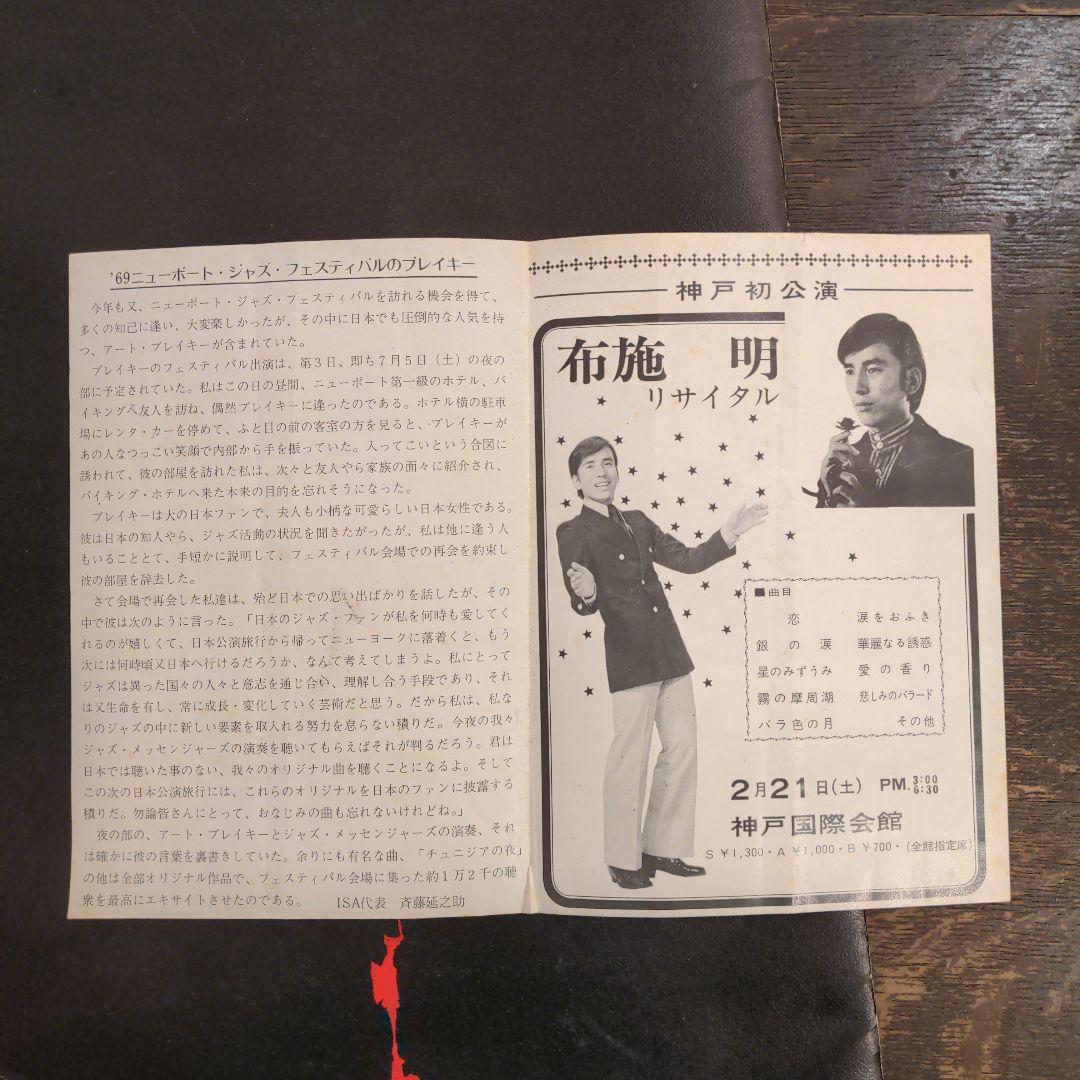 '69ニューポート・ジャズ・フェスティバルのブレイキー
今年も又、ニューポート・ジャズ・フェスティバルを訪れる機会を得て、
多くの知己に逢い、大変楽しかったが、その中に日本でも圧倒的な人気を持
つ、アート・ブレイキーが含まれていた。
ブレイキーのフェスティバル出演は、第3日、即ち7月5日(土)の夜の
部に予定されていた。私はこの日の昼間、ニューポート第一級のホテル、バ
イキングへ友人を訪ね、偶然ブレイキーに逢ったのである。ホテル横の駐車
場にレンタ・カーを停めて、ふと目の前の客室の方を見ると、ブレイキーが
あの人なつっこい笑顔で内部から手を振っていた。入ってこいという合図に
誘われて、彼の部屋を訪れた私は、次々と友人やら家族の面々に紹介され、
バイキング・ホテルへ来た本来の目的を忘れそうになった。
ブレイキーは大の日本ファンで、夫人も小柄な可愛らしい日本女性である。
彼は日本の知人やら、ジャズ活動の状況を聞きたがったが、私は他に逢う人
もいることとて、手短かに説明して、フェスティバル会場での再会を約束し
彼の部屋を辞去した。
さて会場で再会した私達は、殆ど日本での思い出ばかりを話したが、その
中で彼は次のように言った。「日本のジャズ・ファンが私を何時も愛してく
れるのが嬉しくて、日本公演旅行から帰ってニューヨークに落着くと、もう
次には何時頃又日本へ行けるだろうか、なんて考えてしまうよ。私にとって
ジャズは異った国々の人々と意志を通じ合い、理解し合う手段であり、それ
は又生命を有し、常に成長・変化していく芸術だと思う。だから私は、私な
りのジャズの中に新しい要素を取入れる努力を怠らない積りだ。今夜の我々
ジャズ・メッセンジャーズの演奏を聴いてもらえばそれが判るだろう。君は
日本では聴いた事のない、我々のオリジナル曲を聴くことになるよ。そして
この次の日本公演旅行には、これらのオリジナルを日本のファンに披露する
積りだ。勿論皆さんにとって、おなじみの曲も忘れないけれどね。」
夜の部の、アート・ブレイキーとジャズ・メッセンジャーズの演奏、それ
は確かに彼の言葉を裏書きしていた。余りにも有名な曲、「チュニジアの夜」
の他は全部オリジナル作品で、フェスティバル会場に集った約1万2千の聴
衆を最高にエキサイトさせたのである。 ISA代表 斉藤延之助
神戸初公演
布施 明
リサイタル
■曲目
恋 涙をおふき
銀の涙 華麗なる誘惑
星のみずうみ 愛の香り
霧の摩周湖 悲しみのバラード
バラ色の月 その他
2月21日(土) PM. 3:00 6:30
神戸国際会館
S ¥1,300・A ¥1,000・B ¥700・(全館指定席)